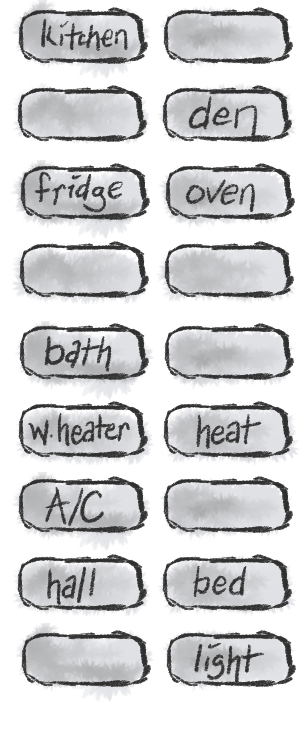 kitchen
den
fridge oven
bath
w.heater heat
A/C
hall bed
light